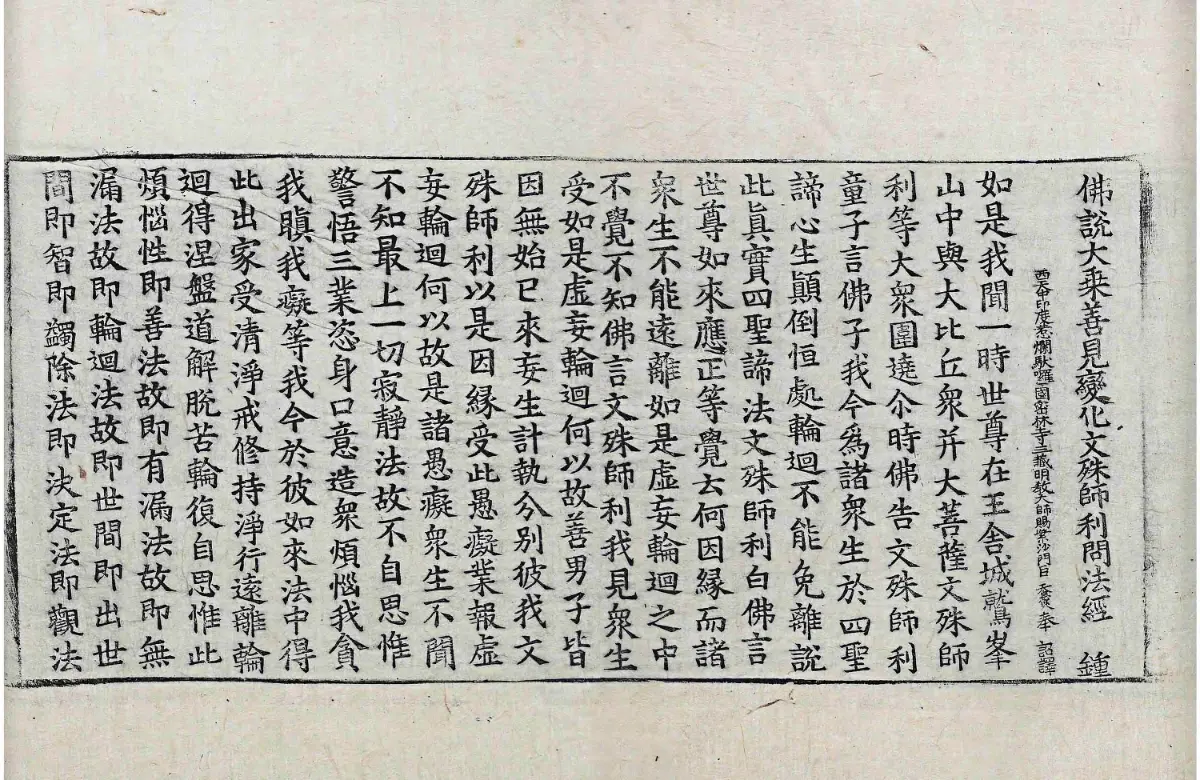 佛說大乘善見變化文殊師利問法經　鍾
西天印度惹爛馱囉國密林寺三藏明教大師賜紫沙門臣　奉　詔譯
如是我聞一時世尊在王舍城鷲峯
山中與大比丘衆并大菩薩文殊師
利等大衆圍遶尒時佛告文殊師利
童子言佛子我今爲諸衆生於四聖
諦心生顚倒恒處輪迴不能免離說
此眞實四聖諦法文殊師利白佛言
世尊如來應正等覺云何因緣而諸
衆生不能遠離如是虛妄輪迴之中
不覺不知佛言文殊師利我見衆生
受如是虛妄輪迴何以故善男子皆
因無始已來妄生計執分別彼我文
殊師利以是因緣受此愚癡業報虛
妄輪迴何以故是諸愚癡衆生不聞
不知最上一切寂靜法故不自思惟
警悟三業恣身口意造衆煩惱我貪
我瞋我癡等我今於彼如來法中得
此出家受清淨戒修持淨行遠離輪
迴得涅盤道解脫苦輪復自思惟此
煩惱性即善法故即有漏法故即無
漏法故即輪迴法故即世間即出世
間即智即蠲除法即決定法即觀法